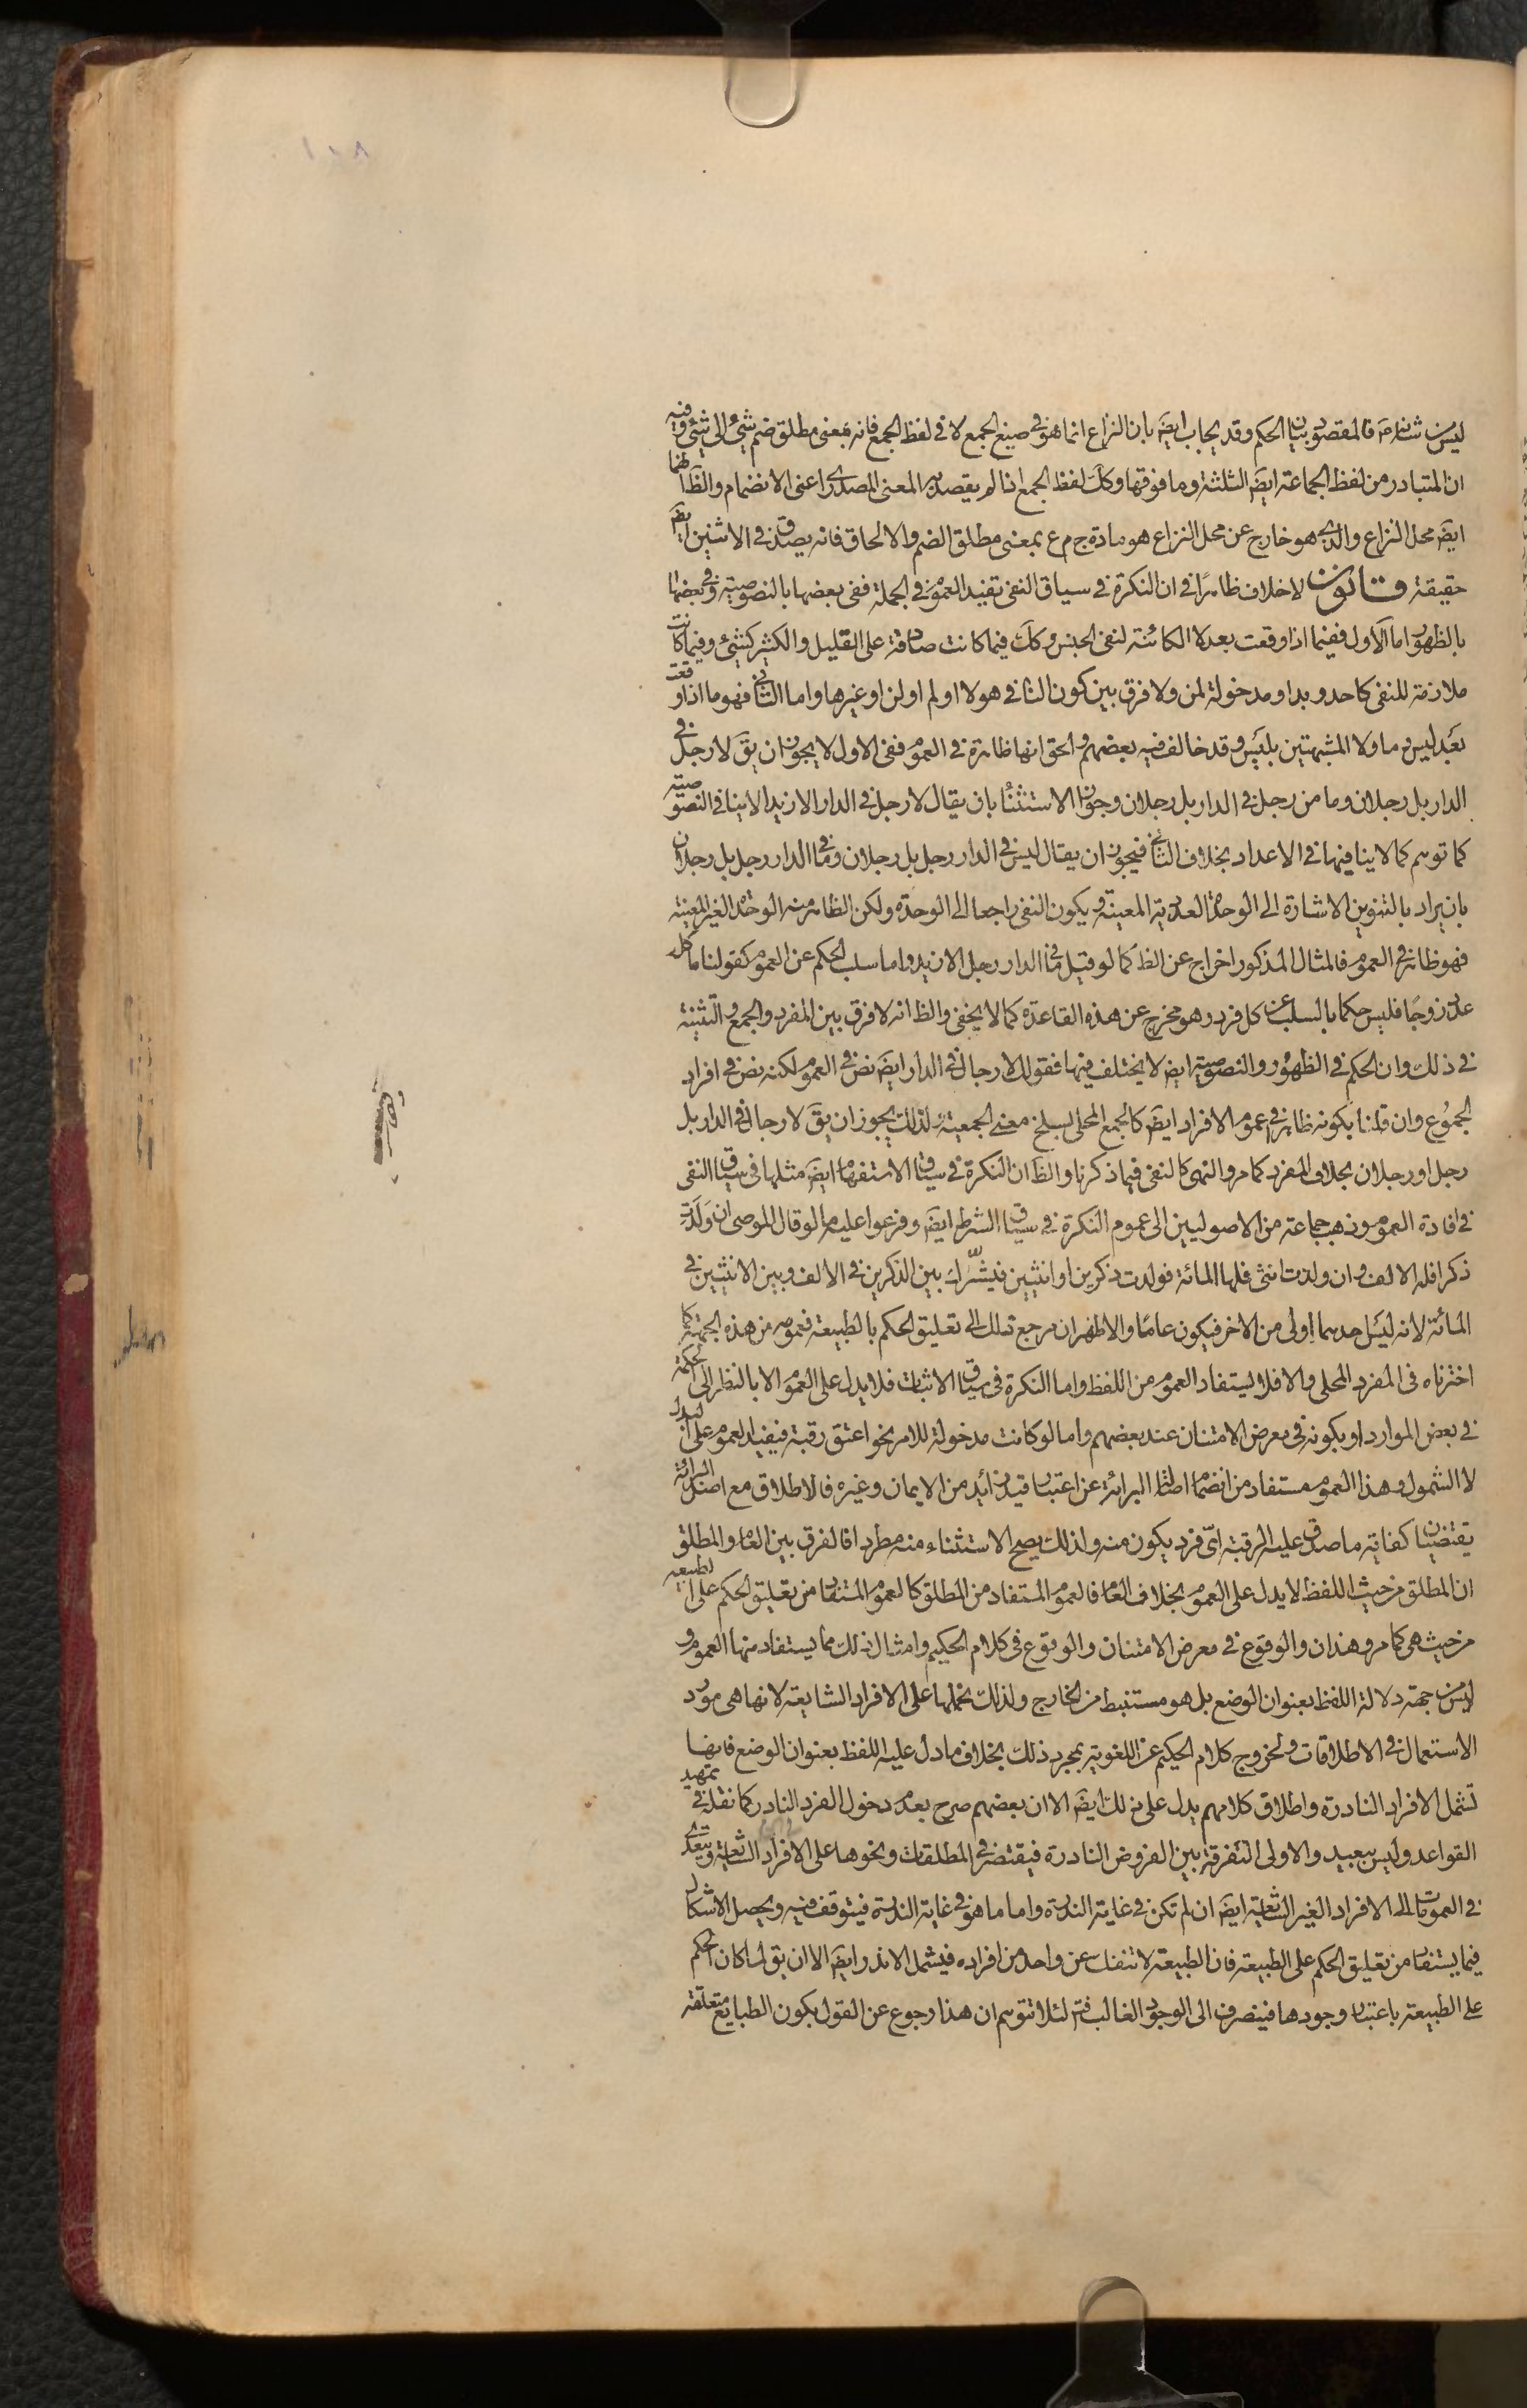 ليس من شانه ص فالمقصود بيان الحكم وقد يجاب ايضَ بان النزاع انما هو في صيغ الجمع لا في لفظ الجمع فانه بمعنى مطلق ضم شئ الى شئ وفيه
ان المتبادر من لفظ الجماعة ايضَ الثلثة وما فوقها وكَك لفظ الجمع اذا لم يقصد به المعنى المصدرى اعنى الانضمام والظَ انهما
ايضَ محل النزاع والذي هو خارج عن محل النزاع هو مادة ج م ع بمعنى مطلق الضم والالحاق فانه يصدق في الاثنين ايضَ
حقيقة قانون لا خلاف ظاهرًا في ان النكرة في سياق النفى تفيد العموم في الجملة ففى بعضها بالنصوصية وفي بعضها
بالظهور اما الاول ففيما اذا وقعت بعد لا الكائنة لنفى الجنس وكَك فيما كانت صادقة على القليل والكثير كشئ وفيما كانت
ملازمة للنفى كاحد وبد او مدخولة لمن ولا فرق بين كون النافي هو لا او لم او لن او غيرها واما الثاني فهو ما اذا وقعت
بعد ليس وما ولا المشبهتين بليس وقد خالف فيه بعضهم والحق انها ظاهرة في العموم ففى الاول لا يجوز ان يقَ لا رجل في
الدار بل رجلان وما من رجل في الدار بل رجلان وجواز الاستثناء بان يقال لا رجل في الدار الا زيدا لا ينافي النصوصية
كما توهم كما لا ينافيها في الاعداد بخلاف الثاني فيجوز ان يقال ليس في الدار رجل بل رجلان وما في الدار رجل بل رجلان
بان يراد بالتنوين الاشارة الى الوحدة العددية المعينة ويكون النفى راجعا الى الوحدة ولكن الظاهر منه الوحدة الغير المعينة
فهو ظاهر في العموم فالمثال المذكور اخراج عن الظَ كما لو قيل ما في الدار رجل الا زيد واما سلب الحكم عن العموم كقولنا ما كل
عدد زوجًا فليس حكما بالسلب عن كل فرد وهو مخرج عن هذه القاعدة كما لا يخفى والظ انه لا فرق بين المفرد والجمع والتثنية
في ذلك وان الحكم في الظهور والنصوصية ايضَ لا يختلف فيها فقولك لا رجال في الدار ايضَ نص في العموم لكنه نص في افراد
الجموع وان قلنا بكونه ظاهرا في عموم الافراد ايضَ كالجمع المحلى لسلخ معنى الجمعية ولذلك يجوز ان يقَ لا رجال في الدار بل
رجل او رجلان بخلاف المفرد كما مر والنهى كالنفى فيما ذكرنا والظَ ان النكرة في سياق الاستفهام ايضَ مثلها في سياق النفى
في افادة العموم وذهب جماعة من الاصوليين الى عموم النكرة في سياق الشرط ايضَ وفرعوا عليه ما لو قال الموصى ان ولدت
ذكرا فله الالف وان ولدت انثى فلها المائة فولدت ذكرين او انثيين فيشرّك بين الذكرين في الالف وبين الانثيين في
المائة لانه ليس احدهما اولى من الاخر فيكون عامًا والاظهر ان مرجع ذلك الى تعليق الحكم بالطبيعة فعمومه من هذه الجهة كما
اخترناه في المفرد المحلى والا فلا يستفاد العموم من اللفظ واما النكرة في سياق الاثبات فلا يدل على العموم الا بالنظر الى الحكمة
في بعض الموارد او بكونه في معرض الامتنان عند بعضهم واما لو كانت مدخولة للامر نحو اعتق رقبة فيفيد العموم على البدل
لا الشمول وهذا العموم مستفاد من انضمام اصالة البرائة عن اعتبار قيد زائد من الايمان وغيره فالاطلاق مع اصل البرائة
يقتضيان كفاية ما صدق عليه الرقبة اىّ فرد يكون منه ولذلك يصح الاستثناء منه مطردا فالفرق بين العام والمطلق
ان المطلق من حيث اللفظ لا يدل على العموم بخلاف العام فالعموم المستفاد من المطلق كالعموم المستفاد من تعليق الحكم على الطبيعة
من حيث هي كما مر وهذان والوقوع في معرض الامتنان والوقوع في كلام الحكيم وامثال ذلك مما يستفاد منها العموم و
ليس من جهة دلالة اللفظ بعنوان الوضع بل هو مستنبط من الخارج ولذلك نحملها على الافراد الشايعة لانها هي مورد
الاستعمال في الاطلاقات ولخروج كلام الحكيم عن اللغوية بمجرد ذلك بخلاف ما دل عليه اللفظ بعنوان الوضع فانها
تشمل الافراد النادرة واطلاق كلامهم يدل على ذلك ايضَ الا ان بعضهم صرح بعدم دخول الفرد النادر كما نقله في تمهيد
القواعد وليس ببعيد والاولى التفرقة بين الفروض النادرة فيقتصر في المطلقات ونحوها على الافراد الشايعة ويتعدى
في العمومات الى الافراد الغير الشايعة ايضَ ان لم تكن في غاية الندرة واما ما هو في غاية الندرة فيتوقف فيه ويحصل الاشكال
فيما يستفاد من تعليق الحكم على الطبيعة فان الطبيعة لا تنفك عن واحد من افراده فيشمل الانذر ايضَ الا ان يق لما كان الحكم
على الطبيعة باعتبار وجودها فينصرف الى الوجود الغالب فتم لئلا تتوهم ان هذا رجوع عن القول بكون الطبايع متعلقة